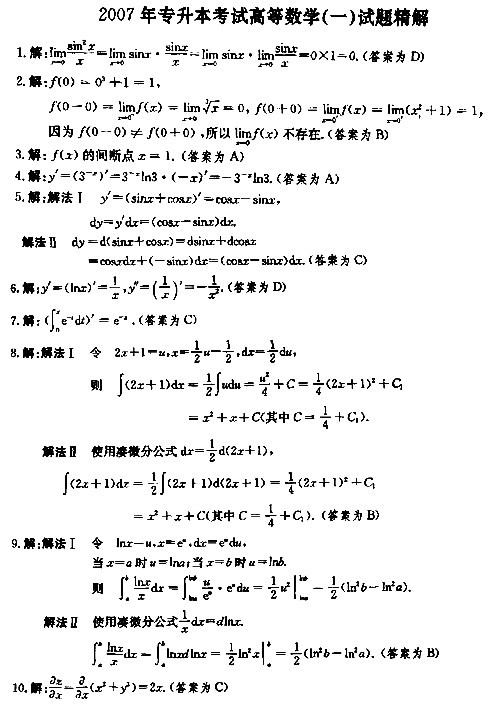 2007年专升本考试高等数学(一)试题精解
1.解:lim(x→0) sin²x/x = lim(x→0) sinx · sinx/x = lim(x→0) sinx · lim(x→0) sinx/x = 0×1=0.(答案为 D)
2.解:f(0) = 0³+1 = 1,
f(0-0) = lim(x→0⁻) f(x) = lim(x→0⁻) ∛x = 0, f(0+0) = lim(x→0⁺) f(x) = lim(x→0⁺)(x³+1) = 1,
因为 f(0-0) ≠ f(0+0),所以 lim(x→0) f(x) 不存在.(答案为 B)
3.解: f(x) 的间断点 x = 1. (答案为 A)
4.解:y′=(3⁻ˣ)′=3⁻ˣln3·(-x)′=-3⁻ˣln3.(答案为 A)
5.解:解法Ⅰ y′=(sinx+cosx)′=cosx-sinx,
dy=y′dx=(cosx-sinx)dx.
解法Ⅱ dy=d(sinx+cosx)=dsinx+dcosx
=cosxdx+(-sinx)dx=(cosx-sinx)dx.(答案为 C)
6.解:y′=(lnx)′=1/x,y″=(1/x)′=-1/x².(答案为 D)
7.解:(∫₀ˣ e⁻ᵗdt)′ = e⁻ˣ.(答案为 C)
8.解:解法Ⅰ 令 2x+1=u,x=1/2u-1/2,dx=1/2du,
则 ∫(2x+1)dx = 1/2∫udu = u²/4+C = 1/4(2x+1)²+C₁
= x²+x+C(其中 C = 1/4+C₁).
解法Ⅱ 使用凑微分公式 dx=1/2d(2x+1),
∫(2x+1)dx = 1/2∫(2x+1)d(2x+1) = 1/4(2x+1)²+C₁
= x²+x+C(其中 C = 1/4+C₁). (答案为 B)
9.解:解法Ⅰ 令 lnx=u,x=eᵘ,dx=eᵘdu,
当 x=a 时 u=lna;当 x=b 时 u=lnb.
则 ∫ₐᵇ lnx/x dx = ∫_lna^lnb u/eᵘ · eᵘdu = 1/2u²|_lna^lnb = 1/2(ln²b-ln²a).
解法Ⅱ 使用凑微分公式 1/x dx=dlnx.
∫ₐᵇ lnx/x dx = ∫ₐᵇ lnxdlnx = 1/2ln²x|ₐᵇ = 1/2(ln²b-ln²a). (答案为 B)
10.解:∂z/∂x=∂/∂x(x²+y²)=2x.(答案为 C)